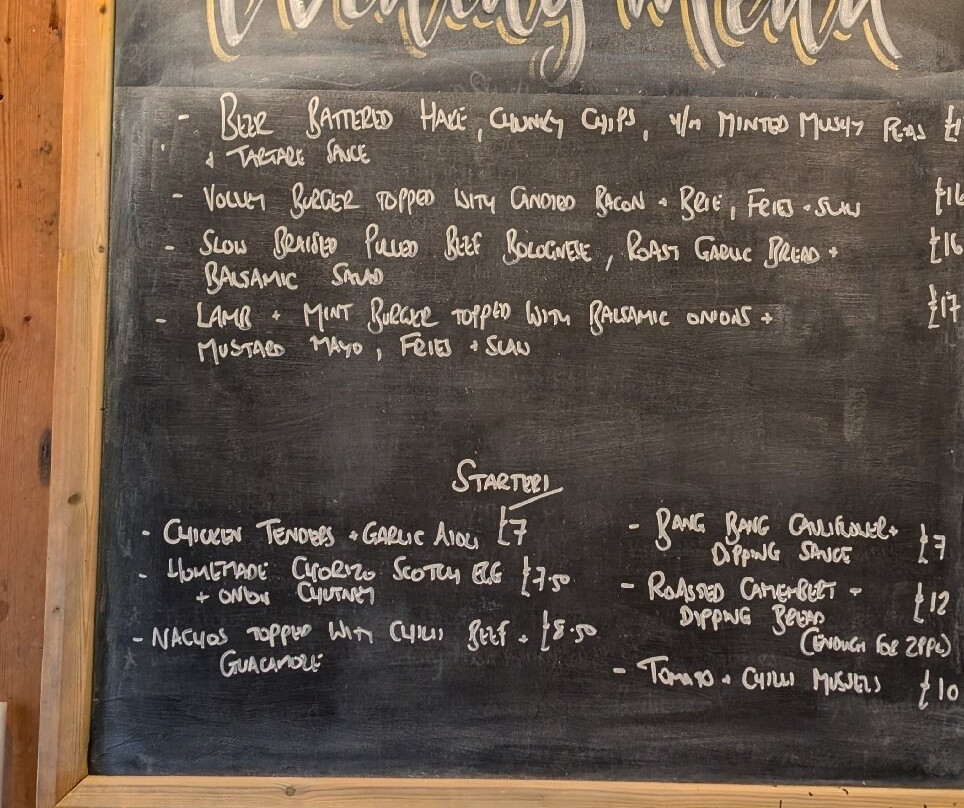 - BEER BATTERED HAKE, CHUNKY CHIPS, MINTED MUSHY PEAS £1
+ TARTARE SAUCE
- BURGER TOPPED WITH CANDIED BACON + BRIE, FRIES + SLAW £16
- SLOW BRAISED PULLED BEEF BOLOGNESE, ROAST GARLIC BREAD + £16
BALSAMIC SALAD
- LAMB + MINT BURGER TOPPED WITH BALSAMIC ONIONS + £17
MUSTARD MAYO, FRIES + SLAW
STARTERS
- CHICKEN TENDERS + GARLIC AIOLI £7
- HOMEMADE CHORIZO SCOTCH EGG £7.50
+ ONION CHUTNEY
- NACHOS TOPPED WITH CHILLI BEEF + £8.50
GUACAMOLE
- BANG BANG CAULIFLOWER + £7
DIPPING SAUCE
- ROASTED CAMEMBERT + £12
DIPPING BREAD
(ENOUGH FOR 2PPL)
- TOMATO + CHILLI MUSSELS £10